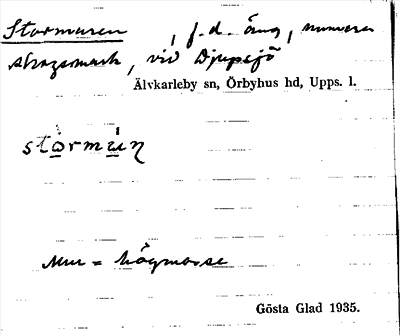 Stormuren, f.d. äng, numera
skogsmark, vid Djupsjö
Älvkarleby sn, Örbyhus hd, Upps. l.
stòrmùn
Mur = högmosse
Gösta Glad 1935.